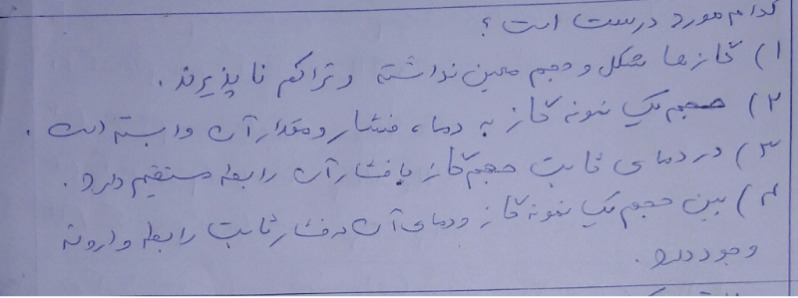 کدام مورد درست است ؟
۱) گازها شکل و حجم معین نداشته و تراکم ناپذیرند .
۲) حجم یک نمونه گاز به دما ، فشار و مقدار آن وابسته است .
۳) در دمای ثابت حجم گاز با فشار آن رابطه مستقیم دارد .
۴) بین حجم یک نمونه گاز و دمای آن در فشار ثابت رابطه وارونه
وجود دارد .